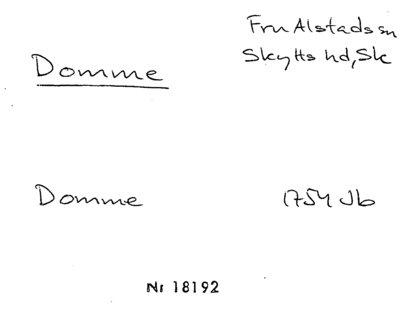 Domme
Fru Alstads sn
Skytts hd, Sk
Domme
1754 Jb
Nr 18192